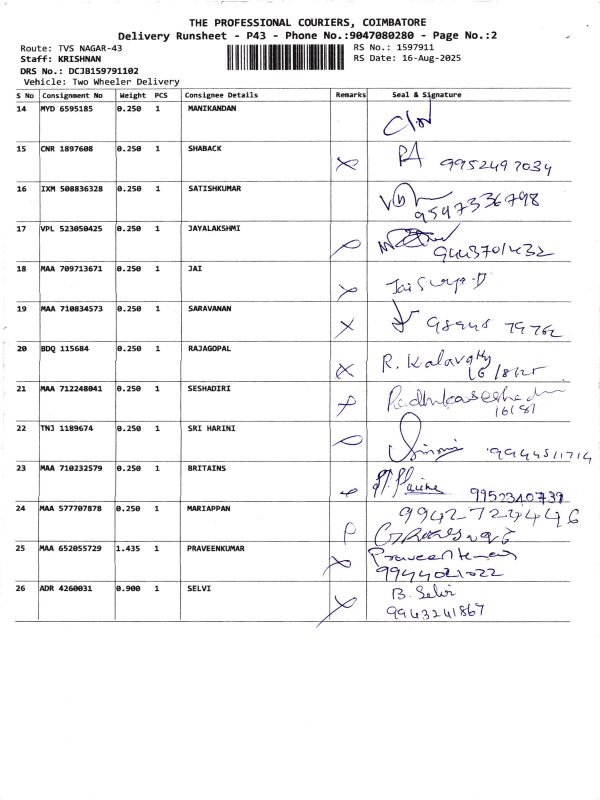 THE PROFESSIONAL COURIERS, COIMBATORE
Delivery Runsheet - P43 - Phone No.:9047080280 - Page No.:2
Route: TVS NAGAR-43 RS No.: 1597911
Staff: KRISHNAN RS Date: 16-Aug-2025
DRS No.: DCJB159791102
Vehicle: Two Wheeler Delivery
S No Consignment No Weight PCS Consignee Details Remarks Seal & Signature
14 MYD 6595185 0.250 1 MANIKANDAN
15 CNR 1897608 0.250 1 SHABACK
9952497034
16 IXM 508836328 0.250 1 SATISHKUMAR
9547336798
17 VPL 523050425 0.250 1 JAYALAKSHMI
9443701432
18 MAA 709713671 0.250 1 JAI
19 MAA 710834573 0.250 1 SARAVANAN
98948 79762
20 BDQ 115684 0.250 1 RAJAGOPAL
R. Kalavathy
16/8/25
21 MAA 712248041 0.250 1 SESHADIRI
16/8/
22 TNJ 1189674 0.250 1 SRI HARINI
9944511714
23 MAA 710232579 0.250 1 BRITAINS
9952340739
24 MAA 577707878 0.250 1 MARIAPPAN
9942724446
25 MAA 652055729 1.435 1 PRAVEENKUMAR
Praveenkumar
9944021022
26 ADR 4260031 0.900 1 SELVI
B. Selvi
9943241867